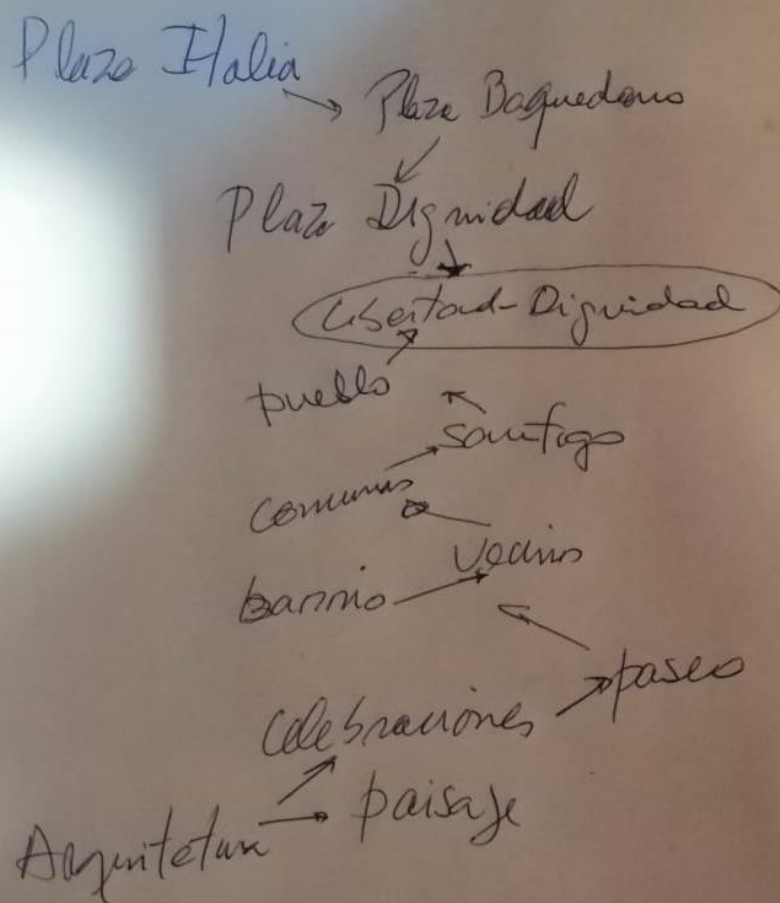 Plaza Italia
Plaza Baquedano
Plaza Dignidad
Libertad-Dignidad
pueblo
santiago
comunas
Vecinos
barrio
paseo
Celebraciones
paisaje
Arquitetura